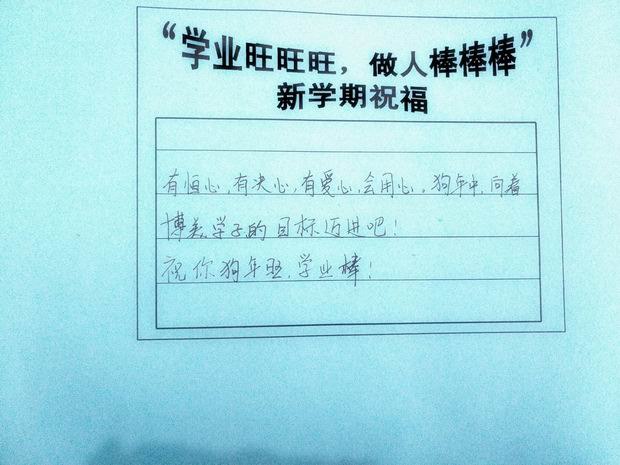 “学业旺旺旺，做人棒棒棒”
新学期祝福
有恒心,有决心,有爱心,会用心。狗年中,向着
博美学子的目标迈进吧!
祝你狗年旺,学业棒!